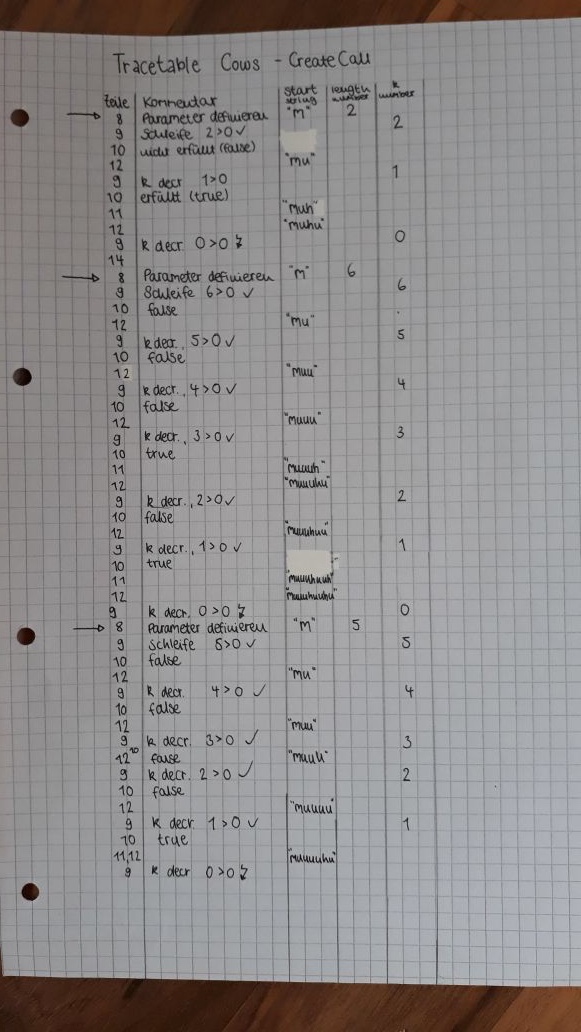 Tracetable Cows - CreateCall
Zeile Kommentar Start string length number k number
8 Parameter definieren "m" 2
9 Schleife 2>0 ✓ 2
10 nicht erfüllt (false)
12 "mu"
9 k decr 1>0 1
10 erfüllt (true)
11 "muh"
12 "muhu"
9 k decr. 0>0 ↯ 0
14
8 Parameter definieren "m" 6
9 Schleife 6>0 ✓ 6
10 false
12 "mu"
9 k decr., 5>0 ✓ 5
10 false
12 "muu"
9 k decr., 4>0 ✓ 4
10 false
12 "muuu"
9 k decr., 3>0 ✓ 3
10 true
11 "muuuh"
12 "muuuhu"
9 k decr., 2>0 ✓ 2
10 false
12 "muuuhuu"
9 k decr., 1>0 ✓ 1
10 true
11 "muuuhuuh"
12 "muuuhuuhu"
9 k decr. 0>0 ↯ 0
8 Parameter definieren "m" 5
9 Schleife 5>0 ✓ 5
10 false
12 "mu"
9 k decr. 4>0 ✓ 4
10 false
12 "muu"
9 k decr. 3>0 ✓ 3
12 10 false "muuu"
9 k decr. 2>0 ✓ 2
10 false
12 "muuuu"
9 k decr. 1>0 ✓ 1
10 true
11,12 "muuuuhu"
9 k decr 0>0 ↯